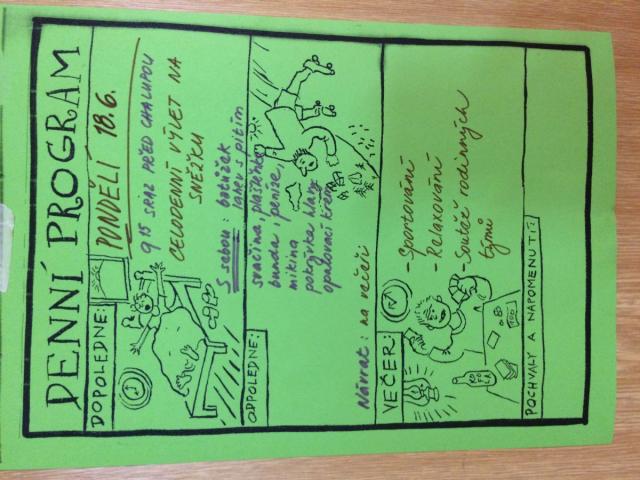 DENNÍ PROGRAM
DOPOLEDNE:
PONDĚLÍ 18.6.
9 15 SRAZ PŘED CHALUPOU
CELODENNÍ VÝLET NA
SNĚŽKU
S sebou: batůžek
lahev s pitím
svačina, pláštěnka
bunda, peníze,
mikina
pokrývka hlavy
opalovací krém
ODPOLEDNE:
Návrat: na večeři
VEČER:
- Sportování
- Relaxování
- Soutěž rodinných
týmů
KO
FO
LA
POCHVALY A NAPOMENUTÍ: